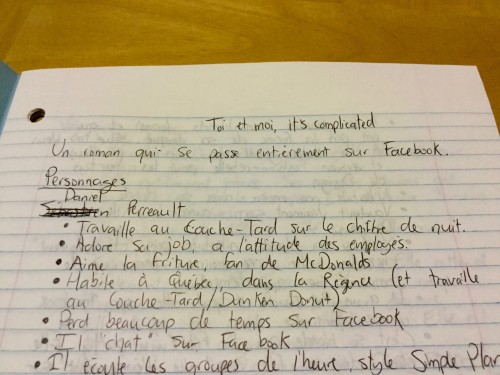 Toi et moi, it's complicated
Un roman qui se passe entièrement sur Facebook.
Personnages
Daniel
Perreault
• Travaille au Couche-Tard sur le chiffre de nuit.
• Adore sa job, a l'attitude des employés.
• Aime la friture, fan de McDonalds
• Habite à Québec, dans la Régence (et travaille
au Couche-Tard/Dunken Donut)
• Perd beaucoup de temps sur Facebook
• Il "chat" sur Facebook
• Il écoute les groupes de l'heure, style Simple Plan